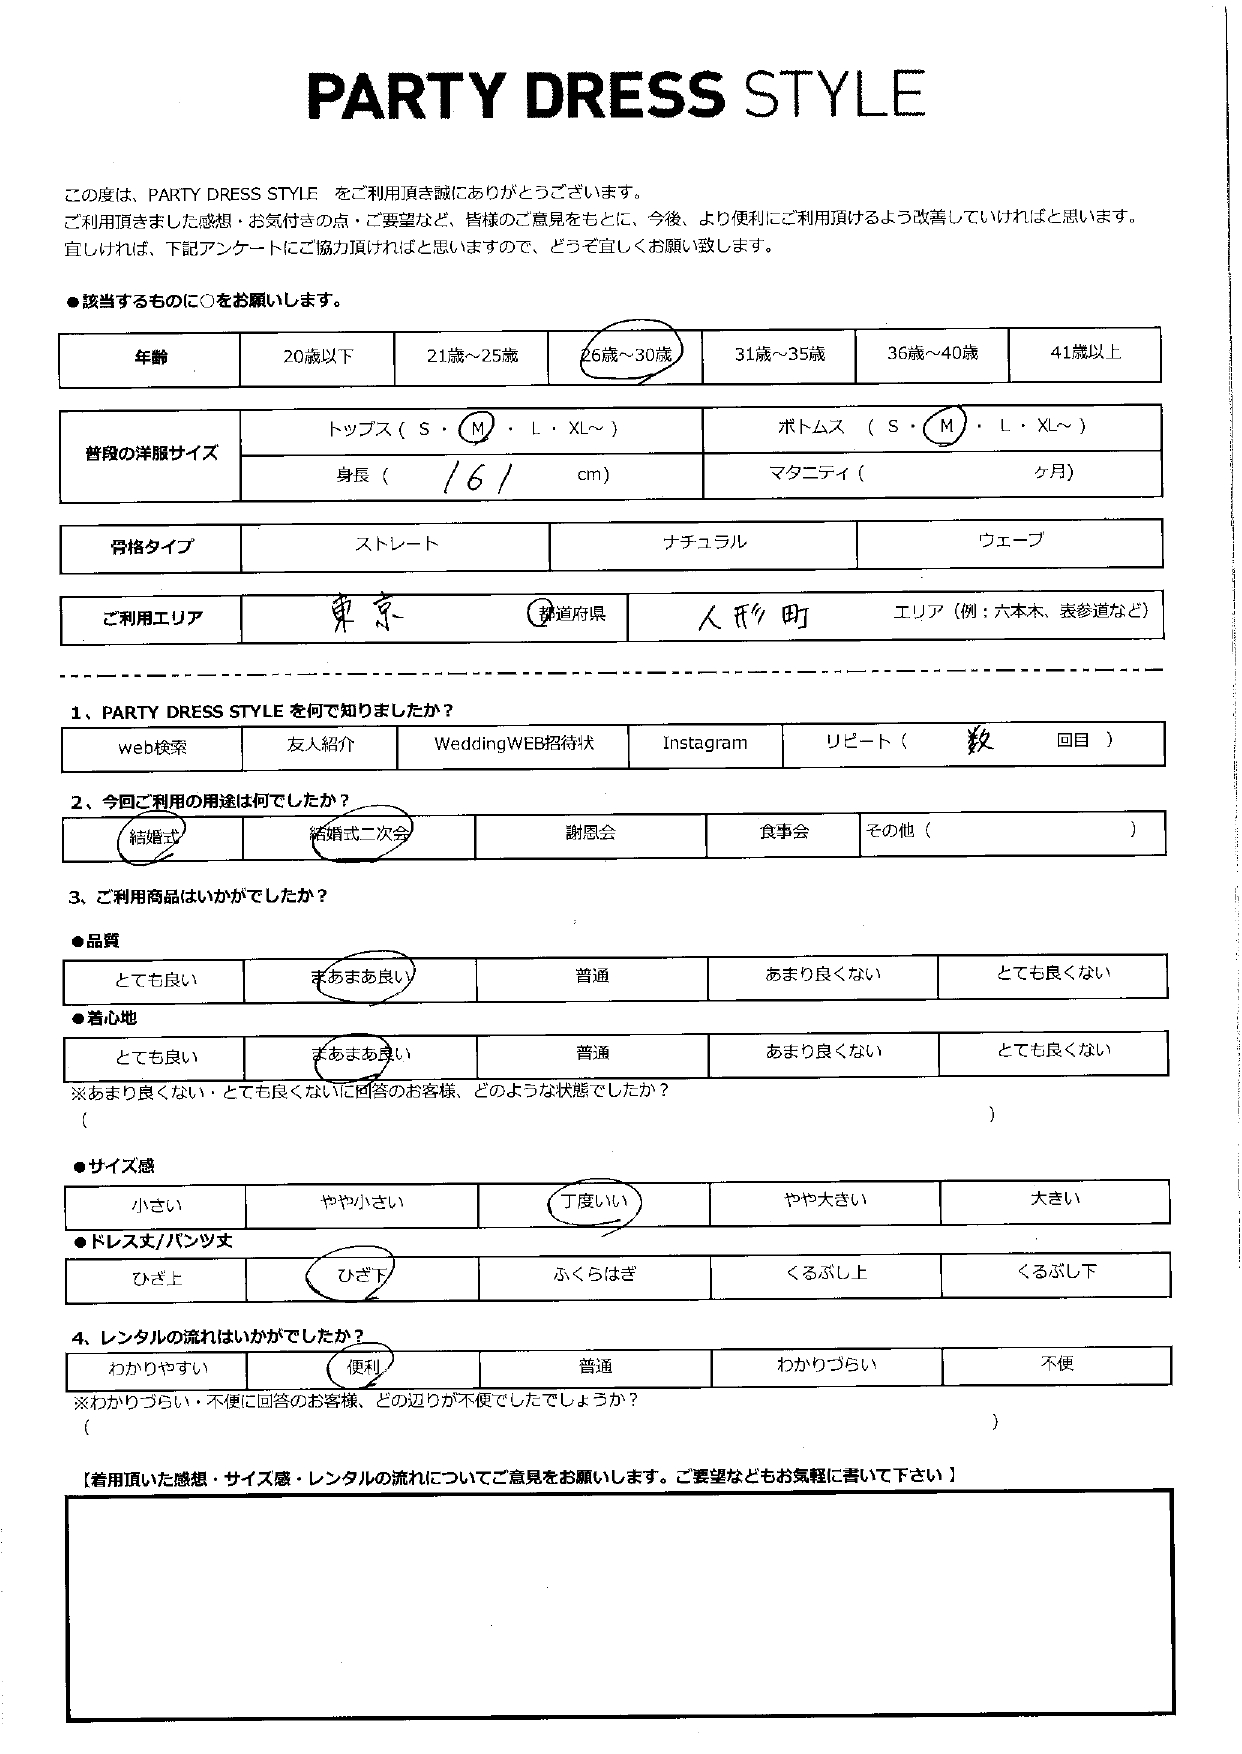 PARTY DRESS STYLE
この度は、PARTY DRESS STYLE をご利用頂き誠にありがとうございます。
ご利用頂きました感想・お気付きの点・ご要望など、皆様のご意見をもとに、今後、より便利にご利用頂けるよう改善していければと思います。
宜しければ、下記アンケートにご協力頂ければと思いますので、どうぞ宜しくお願い致します。
●該当するものに○をお願いします。
年齢 20歳以下 21歳～25歳 26歳～30歳 31歳～35歳 36歳～40歳 41歳以上
普段の洋服サイズ
トップス ( S ・ M ・ L ・ XL～ ) ボトムス ( S ・ M ・ L ・ XL～ )
身長 ( 161 cm) マタニティ ( ヶ月)
骨格タイプ ストレート ナチュラル ウェーブ
ご利用エリア 東京 都道府県 人形町 エリア（例；六本木、表参道など）
1、PARTY DRESS STYLE を何で知りましたか？
web検索 友人紹介 WeddingWEB招待状 Instagram リピート（ 数 回目 ）
2、今回ご利用の用途は何でしたか？
結婚式 結婚式二次会 謝恩会 食事会 その他（ ）
3、ご利用商品はいかがでしたか？
●品質
とても良い まあまあ良い 普通 あまり良くない とても良くない
●着心地
とても良い まあまあ良い 普通 あまり良くない とても良くない
※あまり良くない・とても良くないに回答のお客様、どのような状態でしたか？
（ ）
●サイズ感
小さい やや小さい 丁度いい やや大きい 大きい
●ドレス丈/パンツ丈
ひざ上 ひざ下 ふくらはぎ くるぶし上 くるぶし下
4、レンタルの流れはいかがでしたか？
わかりやすい 便利 普通 わかりづらい 不便
※わかりづらい・不便に回答のお客様、どの辺りが不便でしたでしょうか？
（ ）
【着用頂いた感想・サイズ感・レンタルの流れについてご意見をお願いします。ご要望などもお気軽に書いて下さい 】